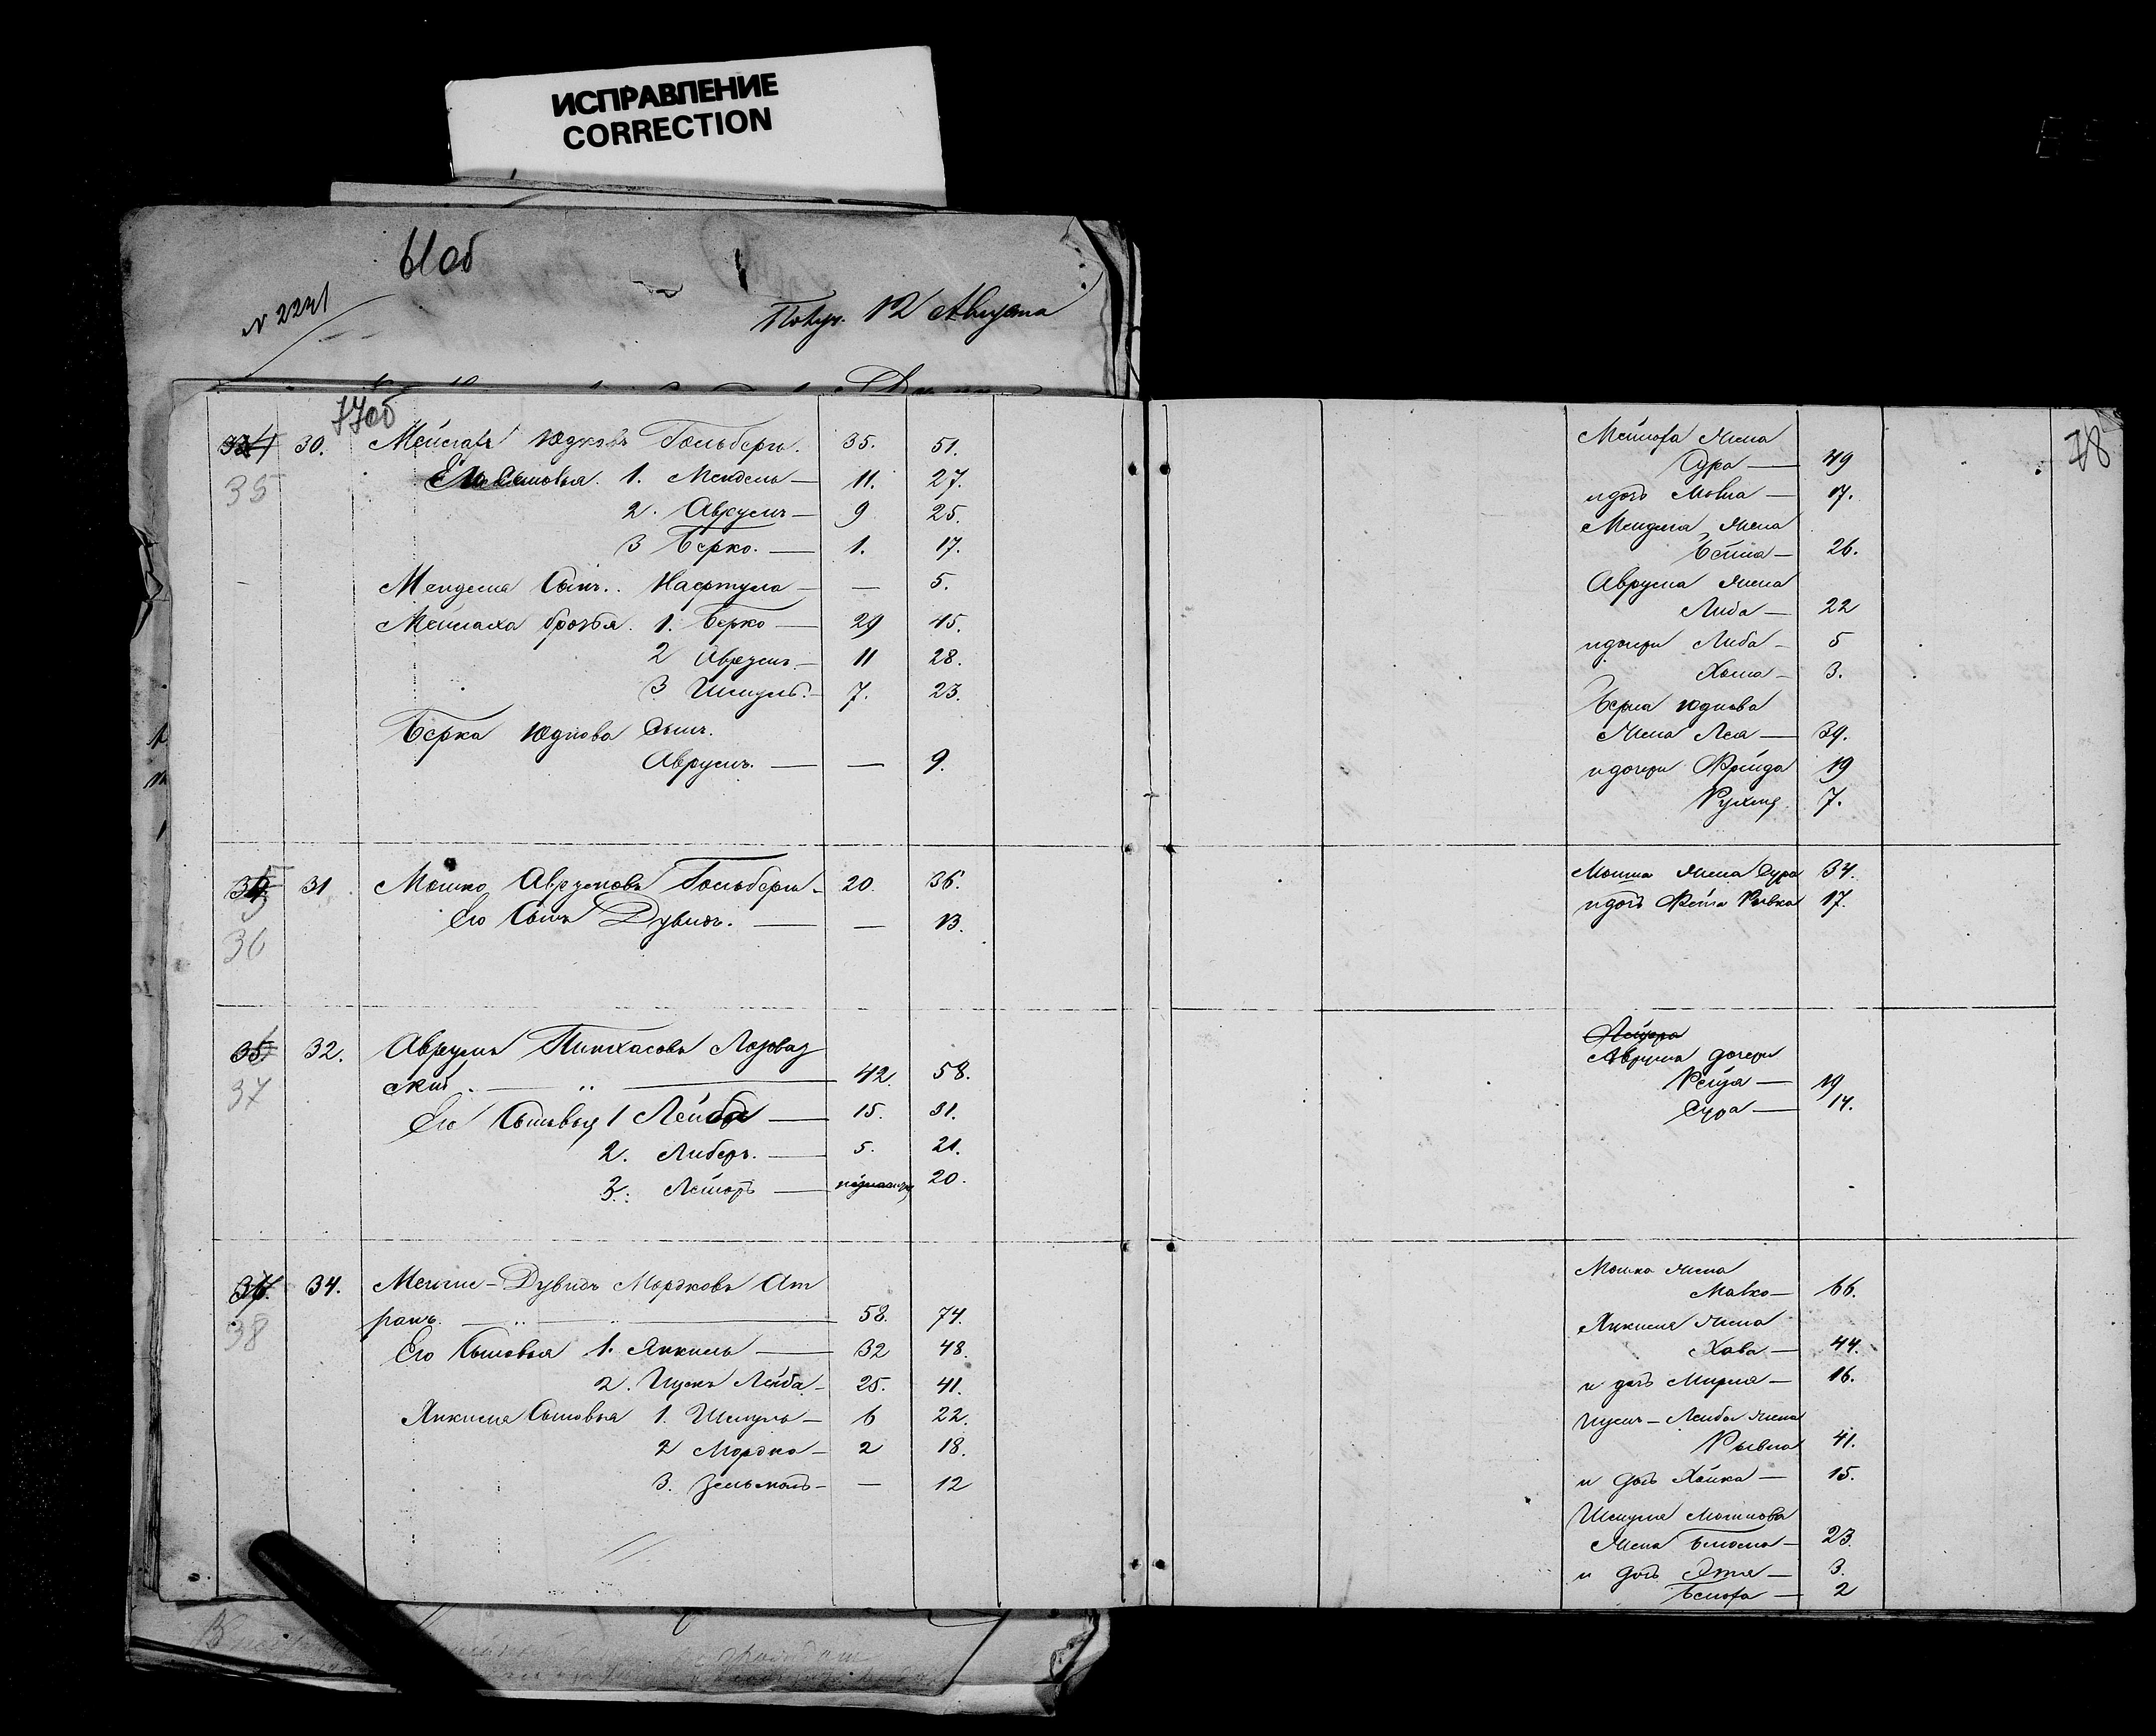 ИСПРАВЛЕНИЕ
CORRECTION
61 об
N 2241
Получ. 12 Августа
77об
30. Мейлахъ Юдковъ Гольбергъ. 35. 51.
35 Его Сыновья. 1. Мендель — 11. 27.
2. Аврумъ — 9 25.
3 Берко. — 1. 17.
Менделя Сынъ.. Нафтула — — 5.
Мейлаха братья. 1. Берко — 29 45.
2 Аврумъ. — 11 28.
3 Шмуль. — 7. 23.
Берка Юдкова Сынъ.
Аврумъ. — — 9.
31 Мошко Аврумовъ Гольбергъ. 20. 36.
36 Его Сынъ Дувидъ. — — 13.
32. Аврумъ Пинхасовъ Лозовац
37 скій. — 42. 58.
Его Сыновья 1 Лейба — 15. 31.
2. Либеръ. — 5. 21.
3. Лейзоръ — 20.
34. Дувидъ Мордковъ Ат
38 ранъ. — 58. 74.
Его Сыновья 1. Янкель — 32 48.
2. Ицекъ Лейба — 25. 41.
Янкеля Сыновья 1. Шмуль — 6 22.
2 Мордко — 2 18.
3. Зельманъ — — 12
78
Мейлаха Жена
Сура — 49
и дочь — 17.
Менделя Жена
Бейла — 26.
Аврума Жена
Либа — 22
и дочери Либа — 5
Хома — 3.
Берка Юдкова
Жена Лея — 39.
и дочери Фрейда 19
Рухля 7.
Мошка Жена Сура 34.
и дочь Фейга Рывка 17.
Аврума дочери
Рейза — 19
Сура — 14.
Мошка Жена
Малко — 66.
Янкеля Жена
Хава — 44.
и дочь Мирля — 16.
Ицека-Лейба Жена
Рывка 41.
и дочь Хайка — 15.
Шмуля Мошкова
Жена Блюма — 23.
и дочь Этля — 3.
— 2